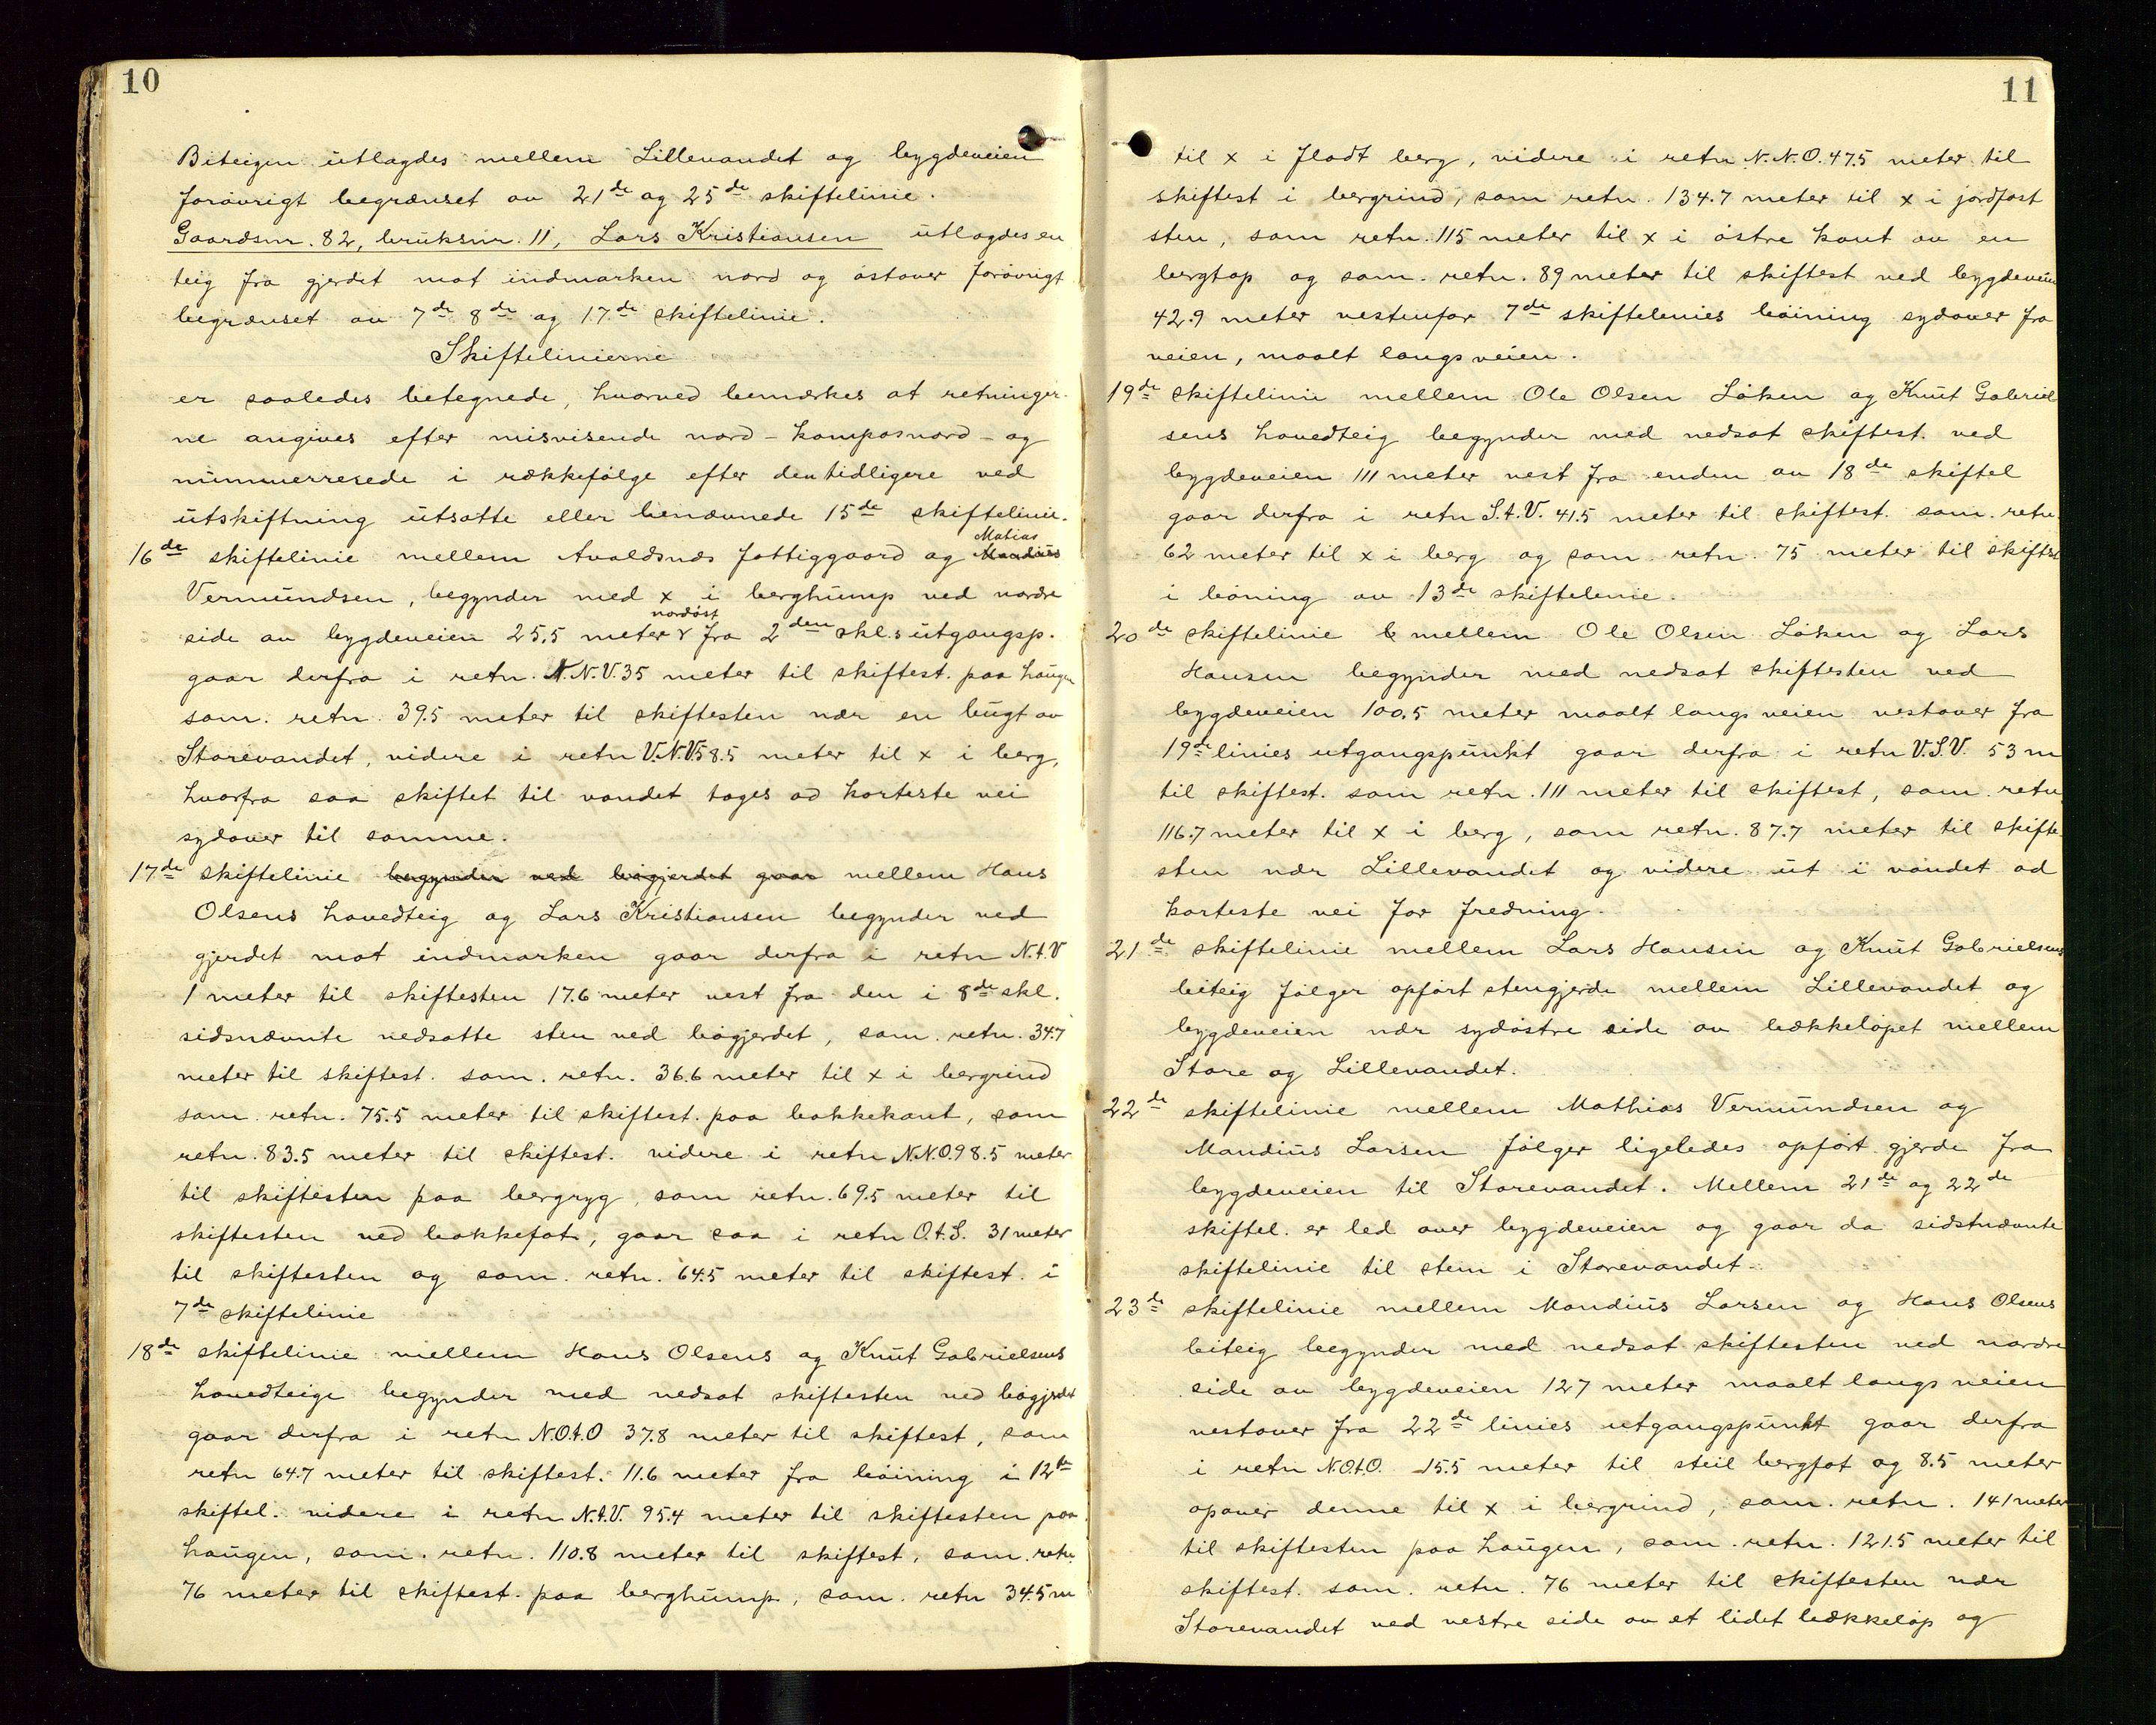 10
Biteigen utlagdes mellem Lillevandet og bygdeveien
forøvrigt begrænset av 21de og 25de skiftelinie.
Gaardsnr. 82, bruksnr. 11, Lars Kristiansen utlagdes en
teig fra gjerdet mot indmarken nord og østover forøvrigt
begrænset av 7de 8de og 17de skiftelinie.
Skiftelinierne
er saaledes betegnede, hvorved bemerkes at retninger-
ne angives efter misvisende nord - kompasnord - og
nummerresede i rækkefølge efter den tidligere ved
utskiftning utsatte eller benævnede 15de skiftelinie.
16de skiftelinie mellem Avaldsnæs fattiggaard og Matias
Vermundsen, begynder med x i berghump ved nordre
side av bygdeveien 25.5 meter nordøst fra 2den skl.s utgangsp.
gaar derfra i retn. N.N.V. 35 meter til skiftest. paa haugen
sam. retn. 39.5 meter til skiftesten nær en bugt av
Storevandet, videre i retn V.N.V. 58.5 meter til x i berg,
hvorfra saa skiftet til vandet tages ad korteste vei
sydover til samme.
17de skiftelinie begynder ved bøgjerdet gaar mellem Hans
Olsens hovedteig og Lars Kristiansen begynder ved
gjerdet mot indmarken gaar derfra i retn N.t.V
1 meter til skiftesten 17.6 meter vest fra den i 8de skl.
sidsnævnte nedsatte sten ved bøgjerdet, sam. retn. 34.7
meter til skiftest. sam. retn. 36.6 meter til x i bergrind
sam. retn. 75.5 meter til skiftest. paa bakkekant, sam
retn. 83.5 meter til skiftest. videre i retn N.N.O. 98.5 meter
til skiftesten paa bergryg, sam retn. 69.5 meter til
skiftesten ved bakkefot, gaar saa i retn O.t.S. 31 meter
til skiftesten og sam. retn. 64.5 meter til skiftest. i
7de skiftelinie
18de skiftelinie mellem Hans Olsens og Knut Gabrielsens
hovedteige begynder med nedsat skiftesten ved bøgjerdet
gaar derfra i retn N.O.t.O 37.8 meter til skiftest, sam
retn 64.7 meter til skiftest. 11.6 meter fra bøining i 12te
skiftel. videre i retn N.t.V. 95.4 meter til skiftesten paa
haugen, sam. retn. 110.8 meter til skiftest, sam. retn.
76 meter til skiftest. paa berghump, sam. retn 34.5 m
11
til x i fladt berg, videre i retn N.N.O. 47.5 meter til
skiftest i bergrind, sam retn. 134.7 meter til x i jordfast
sten, sam retn. 115 meter til x i østre kant av en
bergtop og sam. retn. 89 meter til skiftest ved bygdeveien
42.9 meter vestenfor 7de skiftelinies bøining sydover fra
veien, maalt langs veien.
19de skiftelinie mellem Ole Olsen Løken og Knut Gabriel
sens hovedteig begynder med nedsat skiftest. ved
bygdeveien 111 meter vest fra enden av 18de skiftel
gaar derfra i retn S.t.V. 41.5 meter til skiftest. sam. retn.
62 meter til x i berg og sam. retn. 75 meter til skiftest
i bøning av 13de skiftelinie.
20de skiftelinie b mellem Ole Olsen Løken og Lars
Hansen begynder med nedsat skiftesten ved
bygdeveien 100.5 meter maalt langs veien vestover fra
19de linies utgangspunkt gaar derfra i retn V.S.V. 53 m
til skiftest. sam retn. 111 meter til skiftest, sam. retn
116.7 meter til x i berg, sam retn. 87.7 meter til skifte
sten nær Lillevandet og videre ut i vandet ad
korteste vei for fredning.
21de skiftelinie mellem Lars Hansen og Knut Gabrielsens
biteig følger opført stengjerde mellem Lillevandet og
bygdeveien nær sydøstre side av bækkeløpet mellem
Store og Lillevandet.
22de skiftelinie mellem Mathias Vermundsen og
Mandius Larsen følger ligeledes opført gjerde fra
bygdeveien til Storevandet. Mellem 21de og 22de
skiftel. er led over bygdeveien og gaar da sidstnævnte
skiftelinie til stein i Storevandet.
23de skiftelinie mellem Mandius Larsen og Hans Olsens
biteig begynder med nedsat skiftesten ved nordre
side av bygdeveien 127 meter maalt langs veien
vestover fra 22de linies utgangspunkt gaar derfra
i retn N.O.t.O. 15.5 meter til steil bergfot og 8.5 meter
opover denne til x i bergrind, sam. retn. 141 meter
til skiftesten paa haugen, sam. retn. 121.5 meter til
skiftest. sam. retn. 76 meter til skiftesten nær
Storevandet ved vestre side av et lidet bækkeløp og